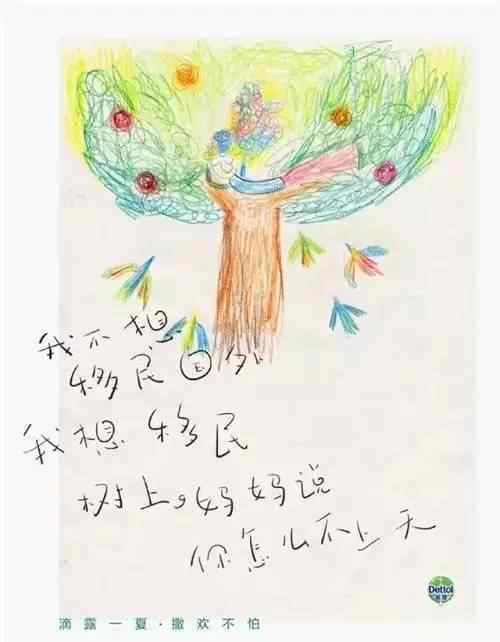 我不想
移民国外
我想移民
树上。妈妈说
你怎么不上天
Dettol
滴露
滴露一夏·撒欢不怕